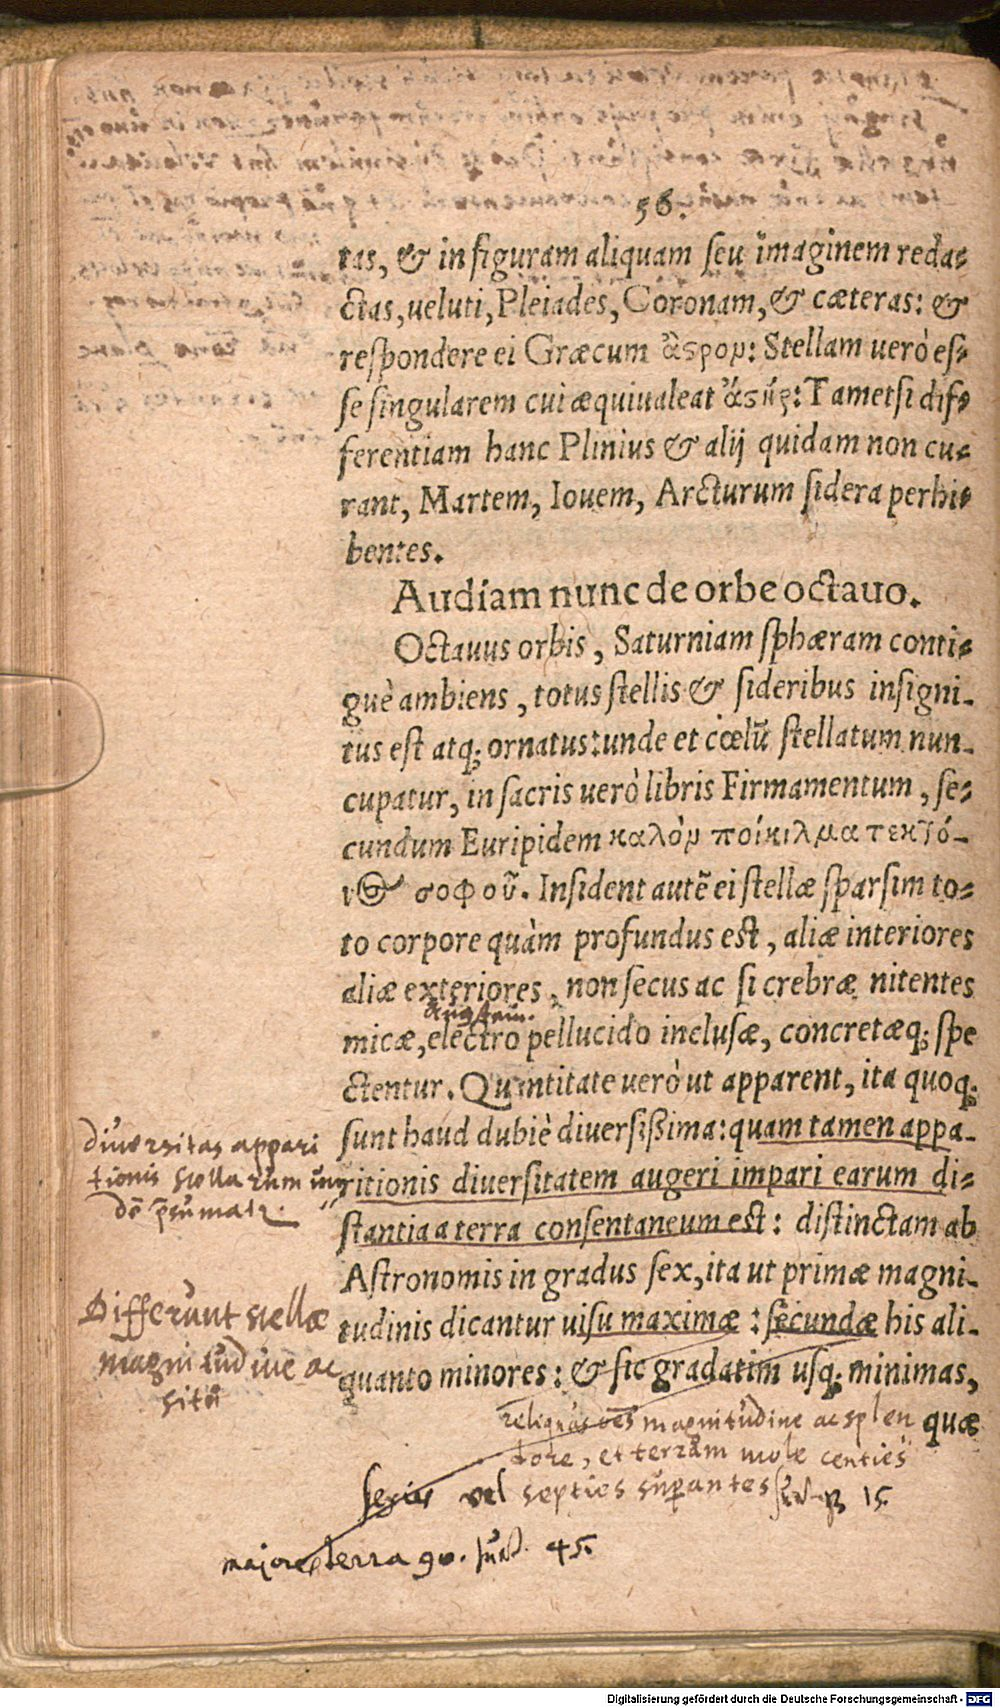 56.
tas, & in figuram aliquam seu imaginem reda-
ctas, ueluti, Pleiades, Coronam, & cæteras: &
respondere ei Græcum ἄϛρον: Stellam uerò es-
se singularem cui æquiualeat ἀϛήρ: Tametsi dif-
ferentiam hanc Plinius & alij quidam non cu-
rant, Martem, Iouem, Arcturum sidera perhi-
bentes.
Audiam nunc de orbe octauo.
Octauus orbis, Saturniam sphæram conti-
guè ambiens, totus stellis & sideribus insigni-
tus est atq; ornatus: unde et cœlū stellatum nun-
cupatur, in sacris uerò libris Firmamentum, se-
cundum Euripidem καλὸν ποίκιλμα τέκτο-
νος σοφοῦ. Insident autē ei stellæ sparsim to-
to corpore quàm profundus est, aliæ interiores
aliæ exteriores, non secus ac si crebræ nitentes
micæ, electro pellucido inclusæ, concretæq; spe
ctentur. Quantitate uerò ut apparent, ita quoq;
sunt haud dubiè diuersißima: quam tamen appa-
ritionis diuersitatem augeri impari earum di-
stantia a terra consentaneum est: distinctam ab
Astronomis in gradus sex, ita ut primæ magni-
tudinis dicantur uisu maximæ: secundæ his ali-
quanto minores: & sic gradatim usq; minimas,
quæ
diuersitas appari
tionis stellarum un
Differunt stellæ
magnitudine ac
situ
magnitudine ac splen
dore, et terram mole centies
vel septies superantes
15
majores terra 90. 45.
Digitalisierung gefördert durch die Deutsche Forschungsgemeinschaft - DFG